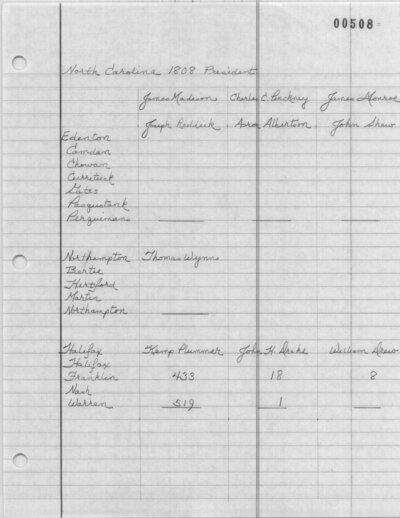 00508
North Carolina 1808 President
James Madison Charles C. Pinckney James Monroe
Joseph Riddick Asron Albertson John Shaw
Edenton
Camden
Chowan
Currituck
Gates
Pasquotank
Perquimans
Northampton Thomas Wynns
Bertie
Hertford
Martin
Northampton
Halifax Kemp Plummer John H. Drake William Drew
Halifax
Franklin 433 18 8
Nash
Warren 519 1